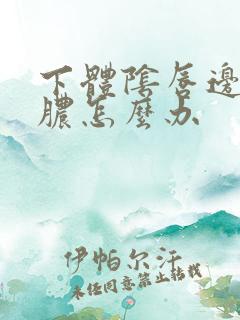 下體陰唇邊
膿怎麼办
伊帕尔汗
未经同意禁止转载